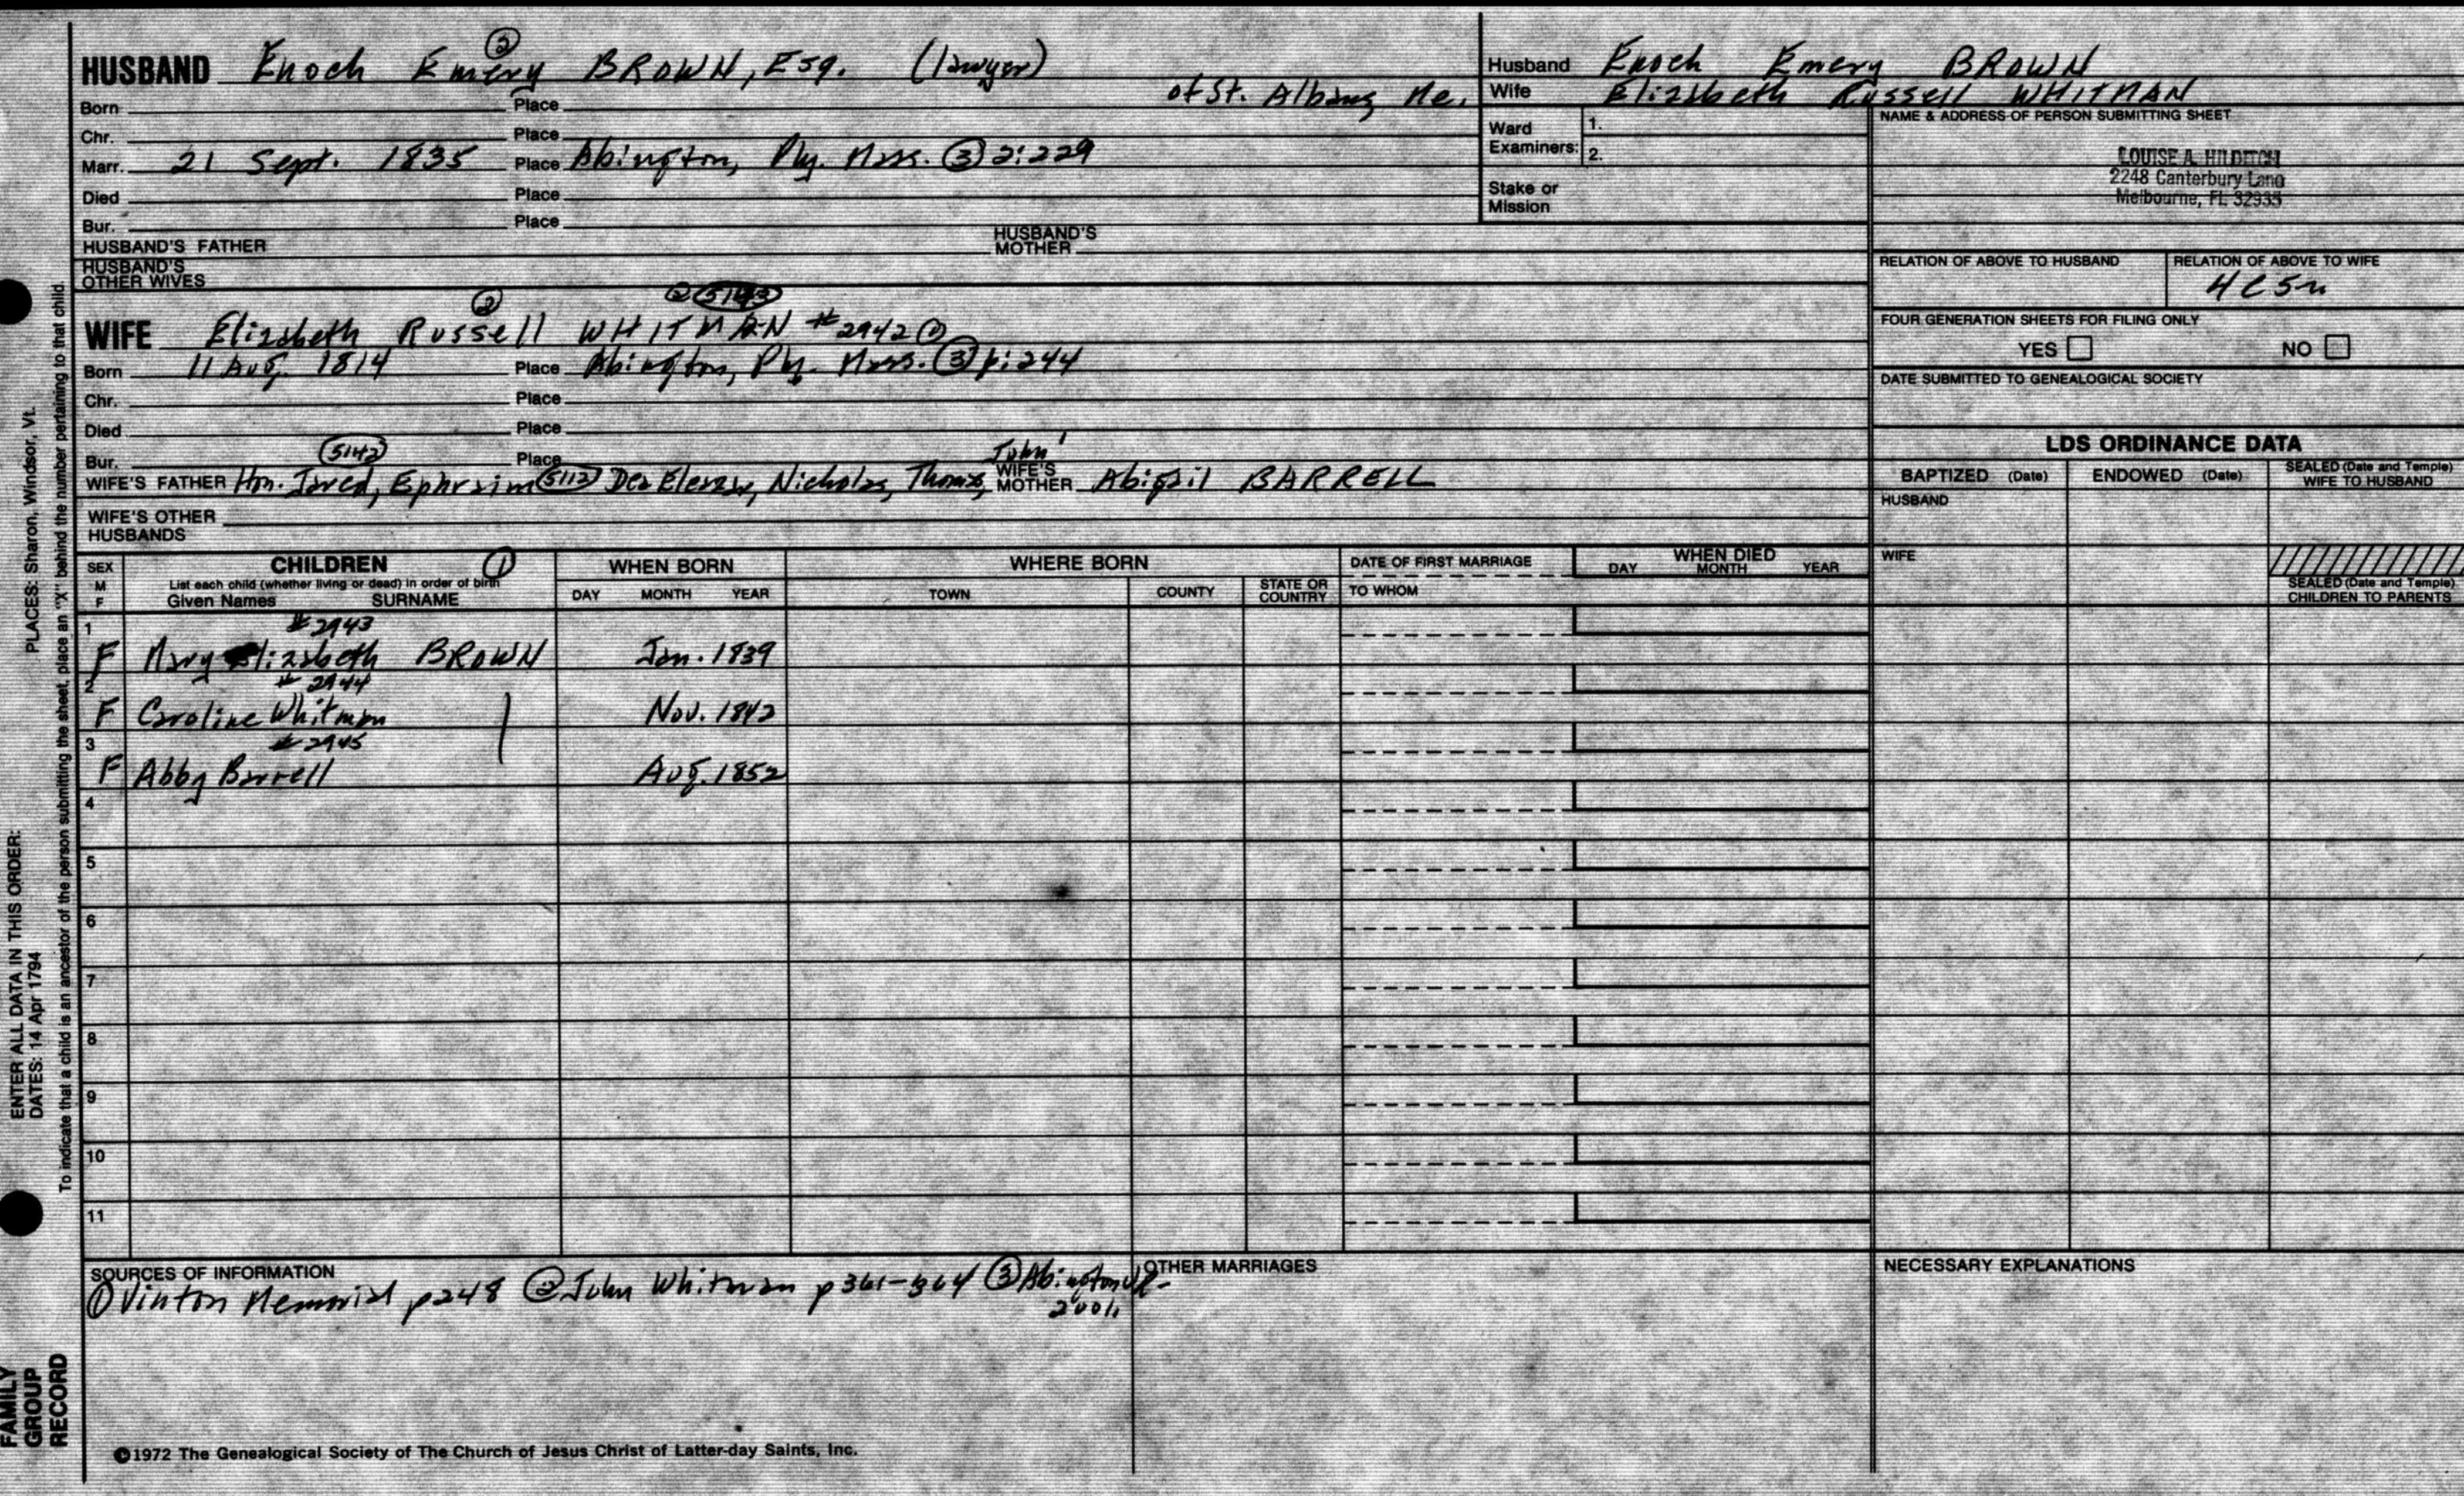 HUSBAND Enoch Emery ② BROWN, Esq. (lawyer)
of St. Albans, Me.
Born Place
Chr. Place
Marr. 21 Sept. 1835 Place Abington, Ply. Mass. ③ 2:229
Died Place
Bur. Place
HUSBAND'S FATHER HUSBAND'S MOTHER
HUSBAND'S OTHER WIVES
② 5143
WIFE Elizabeth Russell ② WHITMAN #2942 ①
Born 11 Aug. 1814 Place Abington, Ply. Mass. ③ 1:244
Chr. Place
Died Place
Bur. Place
5142 John'
WIFE'S FATHER Hon. Jared, Ephraim 5112 Dea Eleazar, Nicholas, Thomas, WIFE'S MOTHER Abigail BARRELL
WIFE'S OTHER HUSBANDS
Husband Enoch Emery BROWN
Wife Elizabeth Russell WHITMAN
Ward Examiners: 1.
2.
Stake or Mission
NAME & ADDRESS OF PERSON SUBMITTING SHEET
LOUISE A. HILDITCH
2248 Canterbury Lane
Melbourne, FL 32935
RELATION OF ABOVE TO HUSBAND RELATION OF ABOVE TO WIFE
4C5r
FOUR GENERATION SHEETS FOR FILING ONLY
YES NO
DATE SUBMITTED TO GENEALOGICAL SOCIETY
LDS ORDINANCE DATA
BAPTIZED (Date) ENDOWED (Date) SEALED (Date and Temple) WIFE TO HUSBAND
HUSBAND
WIFE
SEALED (Date and Temple) CHILDREN TO PARENTS
SEX M F CHILDREN ① WHEN BORN WHERE BORN DATE OF FIRST MARRIAGE WHEN DIED
List each child (whether living or dead) in order of birth
Given Names SURNAME DAY MONTH YEAR TOWN COUNTY STATE OR COUNTRY TO WHOM DAY MONTH YEAR
1 #2943
F Mary Elizabeth BROWN Jan. 1839
2 #2944
F Caroline Whitman Nov. 1842
3 #2945
F Abby Barrell Aug. 1852
4
5
6
7
8
9
10
11
SOURCES OF INFORMATION
① Vinton Memorial p248 ② John Whitman p361-364 ③ Abington VR-
OTHER MARRIAGES
NECESSARY EXPLANATIONS
©1972 The Genealogical Society of The Church of Jesus Christ of Latter-day Saints, Inc.
PLACES: Sharon, Windsor, Vt.
ENTER ALL DATA IN THIS ORDER:
DATES: 14 Apr 1794
To indicate that a child is an ancestor of the person submitting the sheet, place an "X" behind the number pertaining to that child
FAMILY GROUP RECORD